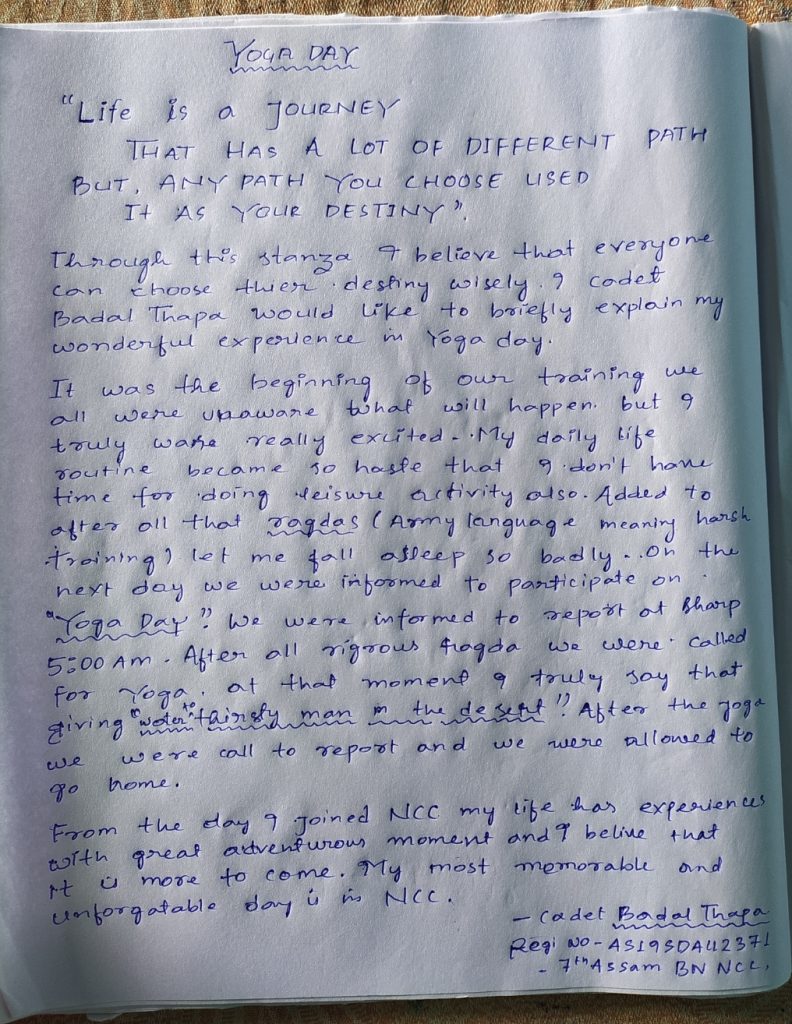 YOGA DAY
"Life is a JOURNEY
THAT HAS A LOT OF DIFFERENT PATH
BUT, ANY PATH YOU CHOOSE USED
It AS YOUR DESTINY".
Through this stanza I believe that everyone
can choose thier destiny wisely. I cadet
Badal Thapa would like to briefly explain my
wonderful experience in Yoga day.
It was the beginning of our training we
all were unaware what will happen. but I
truly ware really excited. My daily life
routine became so haste that I don't have
time for doing leisure activity also. Added to
after all that ragdas (Army language meaning harsh
training) let me fall asleep so badly.. On the
next day we were informed to participate on
"Yoga Day". We were informed to report at sharp
5:00 AM. After all rigrous ragda we were called
for Yoga. at that moment I truly say that
giving "water" to thirsty man in the desert". After the yoga
we were call to report and we were allowed to
go home.
From the day I joined NCC my life has experiences
with great adventurous moment and I belive that
it is more to come. My most memorable and
unforgatable day is in NCC.
- Cadet Badal Thapa
Regi NO - AS19SDA42371
- 7th Assam BN NCC,